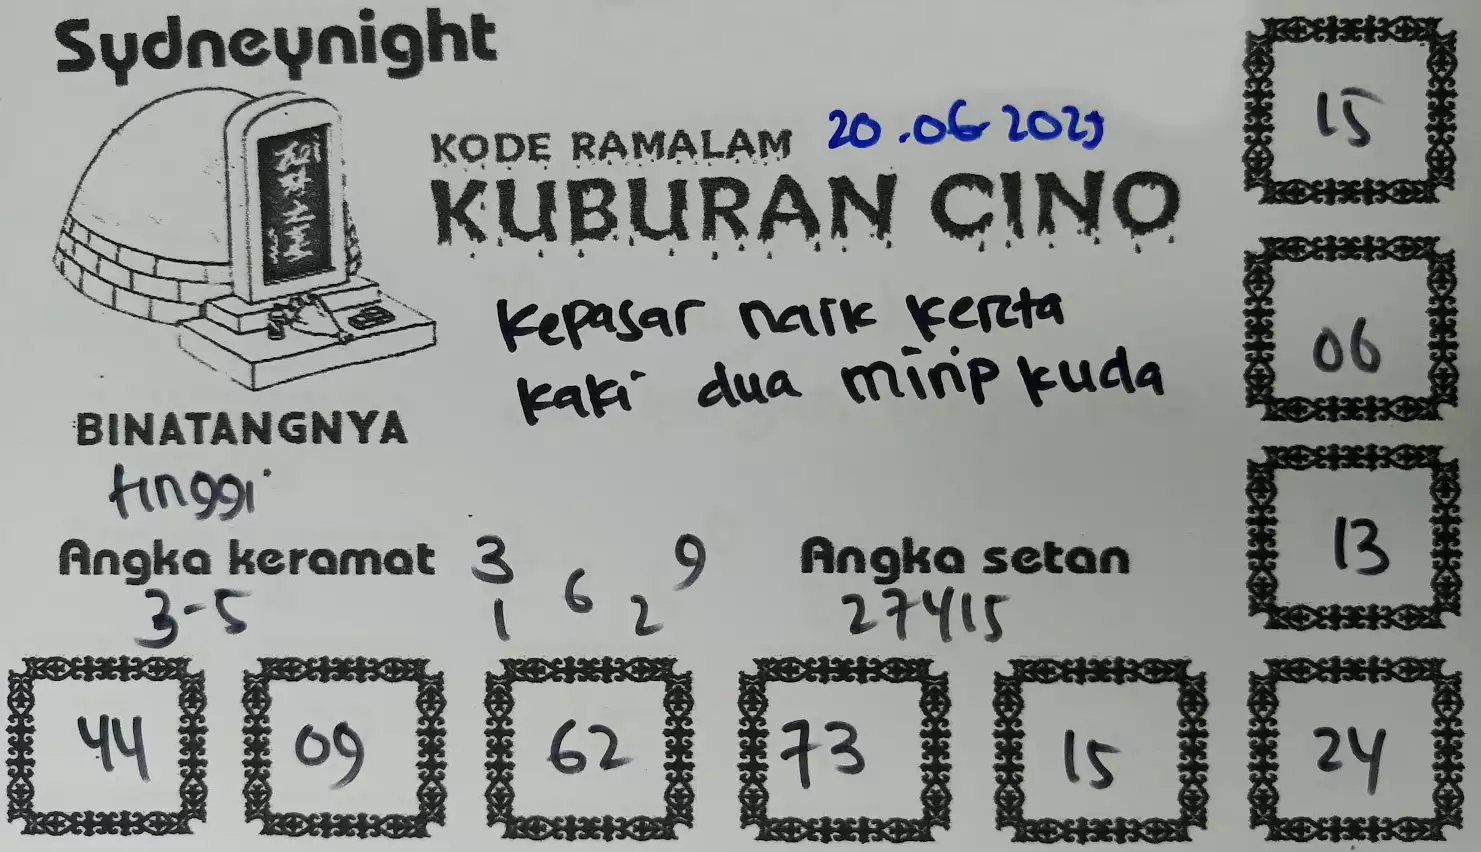 Sydneynight
KODE RAMALAM 20.06 2025
KUBURAN CINO
kepasar naik kereta
kaki dua mirip kuda
BINATANGNYA
tinggi
Angka keramat
3-5
3 6 9
1 2
Angka setan
27415
15
06
13
44 09 62 73 15 24